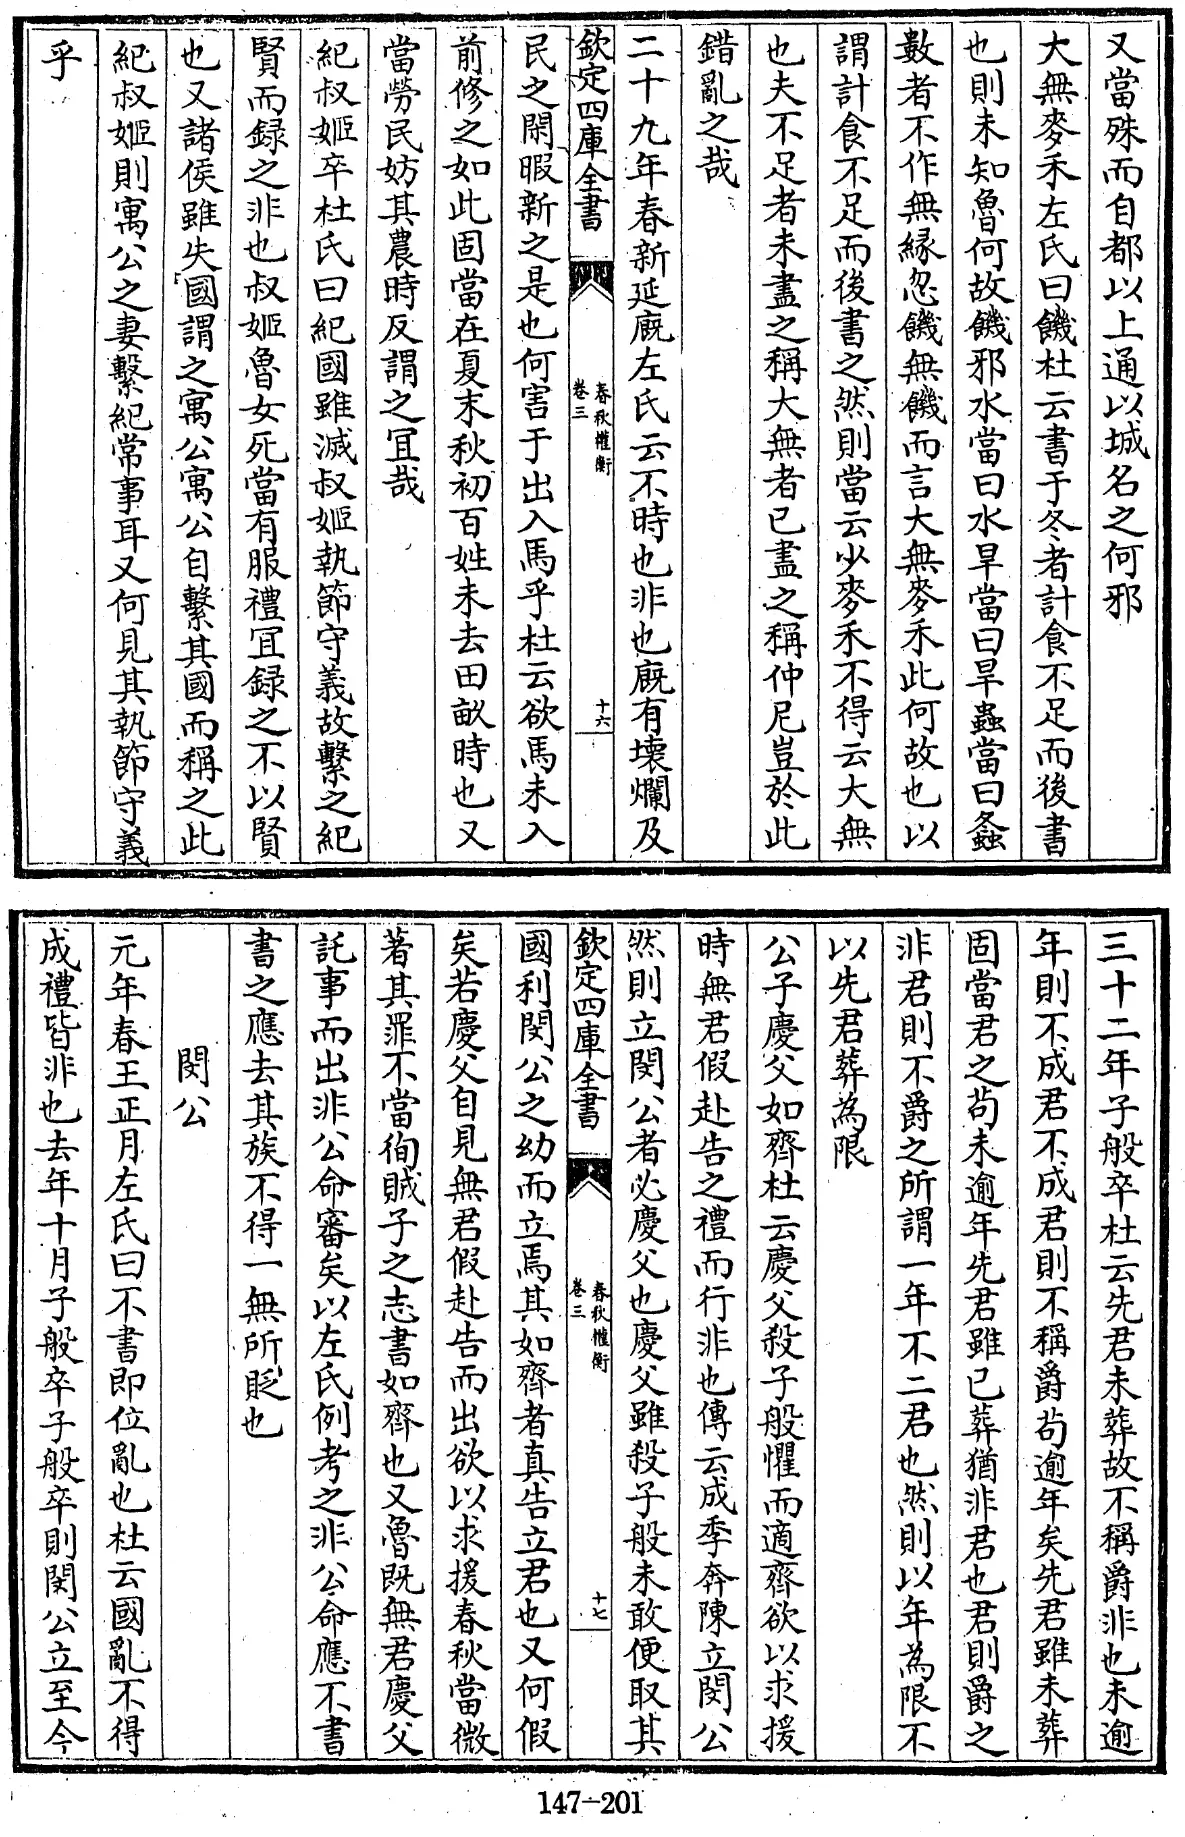 又當殊而自都以上通以城名之何邪
大無麥禾左氏曰饑杜云書于冬者計食不足而後書
也則未知魯何故饑邪水當曰水旱當曰旱蟲當曰螽
數者不作無縁忽饑無饑而言大無麥禾此何故也以
謂計食不足而後書之然則當云少麥禾不得云大無
也夫不足者未盡之稱大無者已盡之稱仲尼豈於此
錯亂之哉
二十九年春新延廐左氏云不時也非也廐有壊爛及
欽定四庫全書
春秋權衡
卷三
十六
民之閑暇新之是也何害于出入馬乎杜云欲馬未入
前修之如此固當在夏末秋初百姓未去田畝時也又
當勞民妨其農時反謂之宜哉
紀叔姬卒杜氏曰紀國雖滅叔姬執節守義故繫之紀
賢而録之非也叔姬魯女死當有服禮宜録之不以賢
也又諸侯雖失國謂之寓公寓公自繫其國而稱之此
紀叔姬則寓公之妻繫紀常事耳又何見其執節守義
乎
三十二年子般卒杜云先君未葬故不稱爵非也未逾
年則不成君不成君則不稱爵茍逾年矣先君雖未葬
固當君之茍未逾年先君雖已葬猶非君也君則爵之
非君則不爵之所謂一年不二君也然則以年為限不
以先君葬為限
公子慶父如齊杜云慶父殺子般懼而適齊欲以求援
時無君假赴告之禮而行非也傳云成季奔陳立閔公
然則立閔公者必慶父也慶父雖殺子般未敢便取其
欽定四庫全書
春秋權衡
卷三
十七
國利閔公之幼而立焉其如齊者真告立君也又何假
矣若慶父自見無君假赴告而出欲以求援春秋當微
著其罪不當徇賊子之志書如齊也又魯既無君慶父
託事而出非公命審矣以左氏例考之非公命應不書
書之應去其族不得一無所貶也
閔公
元年春王正月左氏曰不書即位亂也杜云國亂不得
成禮皆非也去年十月子般卒子般卒則閔公立至今
147-201